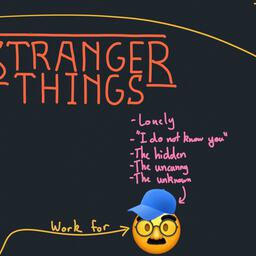 STRANGER
THINGS
- Lonely
- "I do not know you"
- The hidden
- The uncanny
- The unknown
Work for